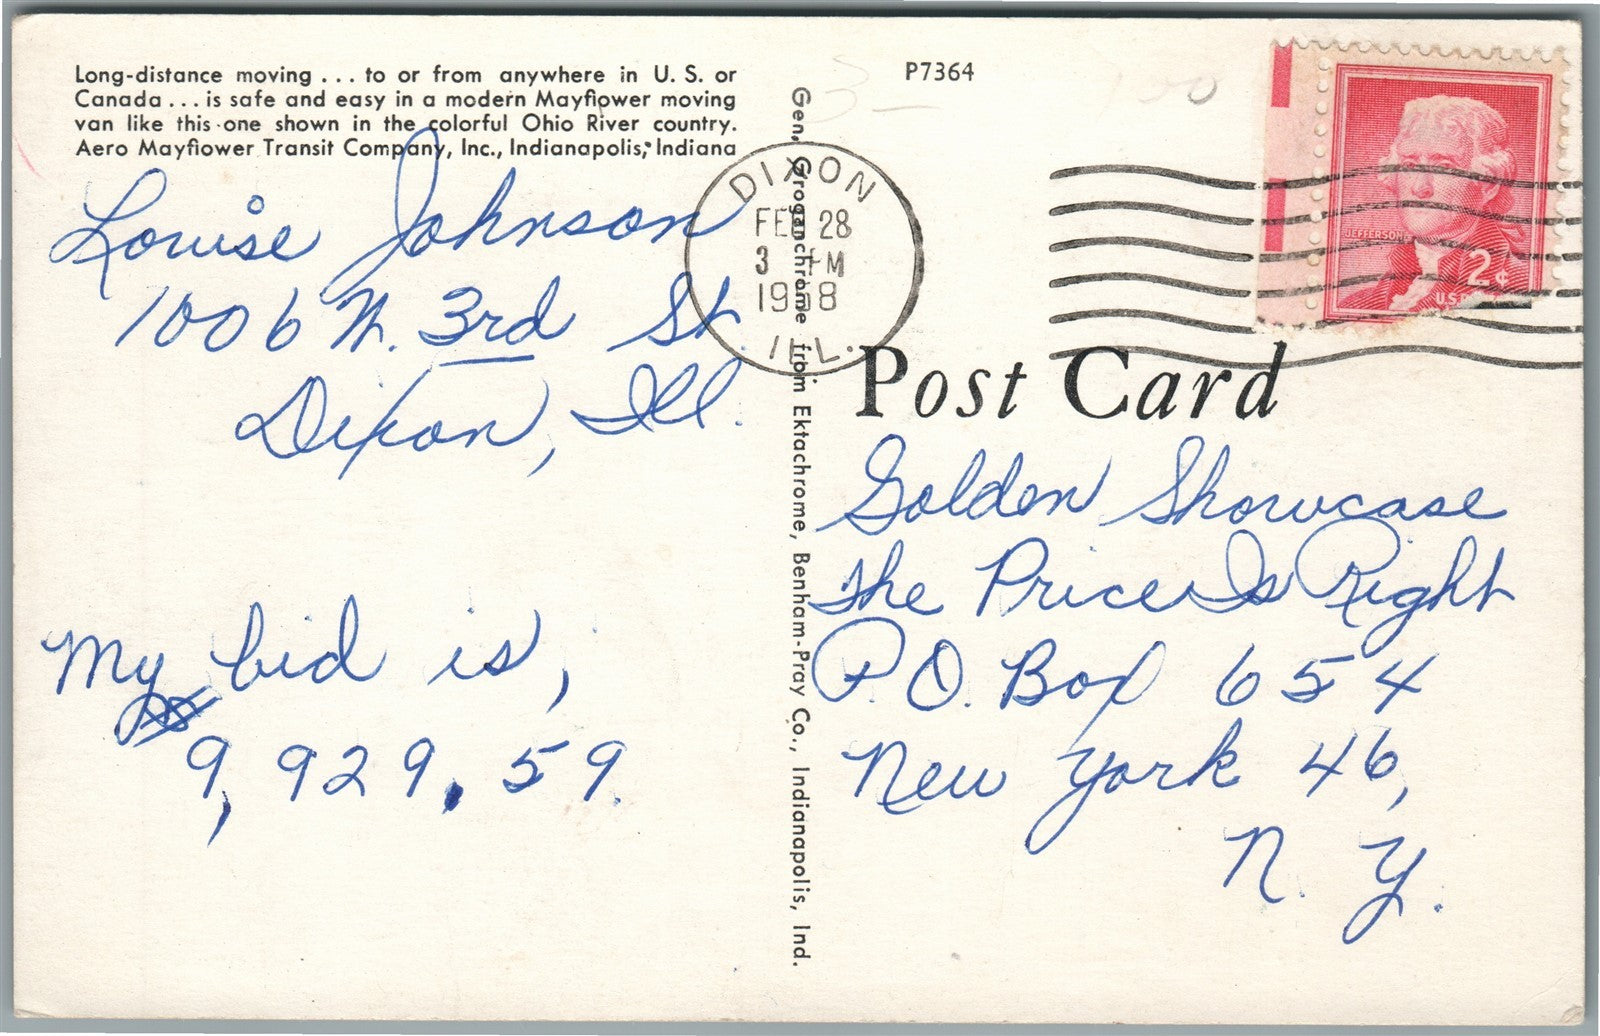 Long-distance moving ... to or from anywhere in U. S. or
Canada ... is safe and easy in a modern Mayflower moving
van like this one shown in the colorful Ohio River country.
Aero Mayflower Transit Company, Inc., Indianapolis, Indiana
Louise Johnson
1006 N. 3rd St.
Dixon, Ill.
My bid is,
9,929.59.
Gen. Groganchrome from Ektachrome, Benham-Pray Co., Indianapolis, Ind.
P7364
DIXON
FEB 28
3 PM
1958
ILL.
JEFFERSON
2¢
U.S.
Post Card
Golden Showcase
The Price Is Right
P.O. Box 654
New York 46,
N. Y.